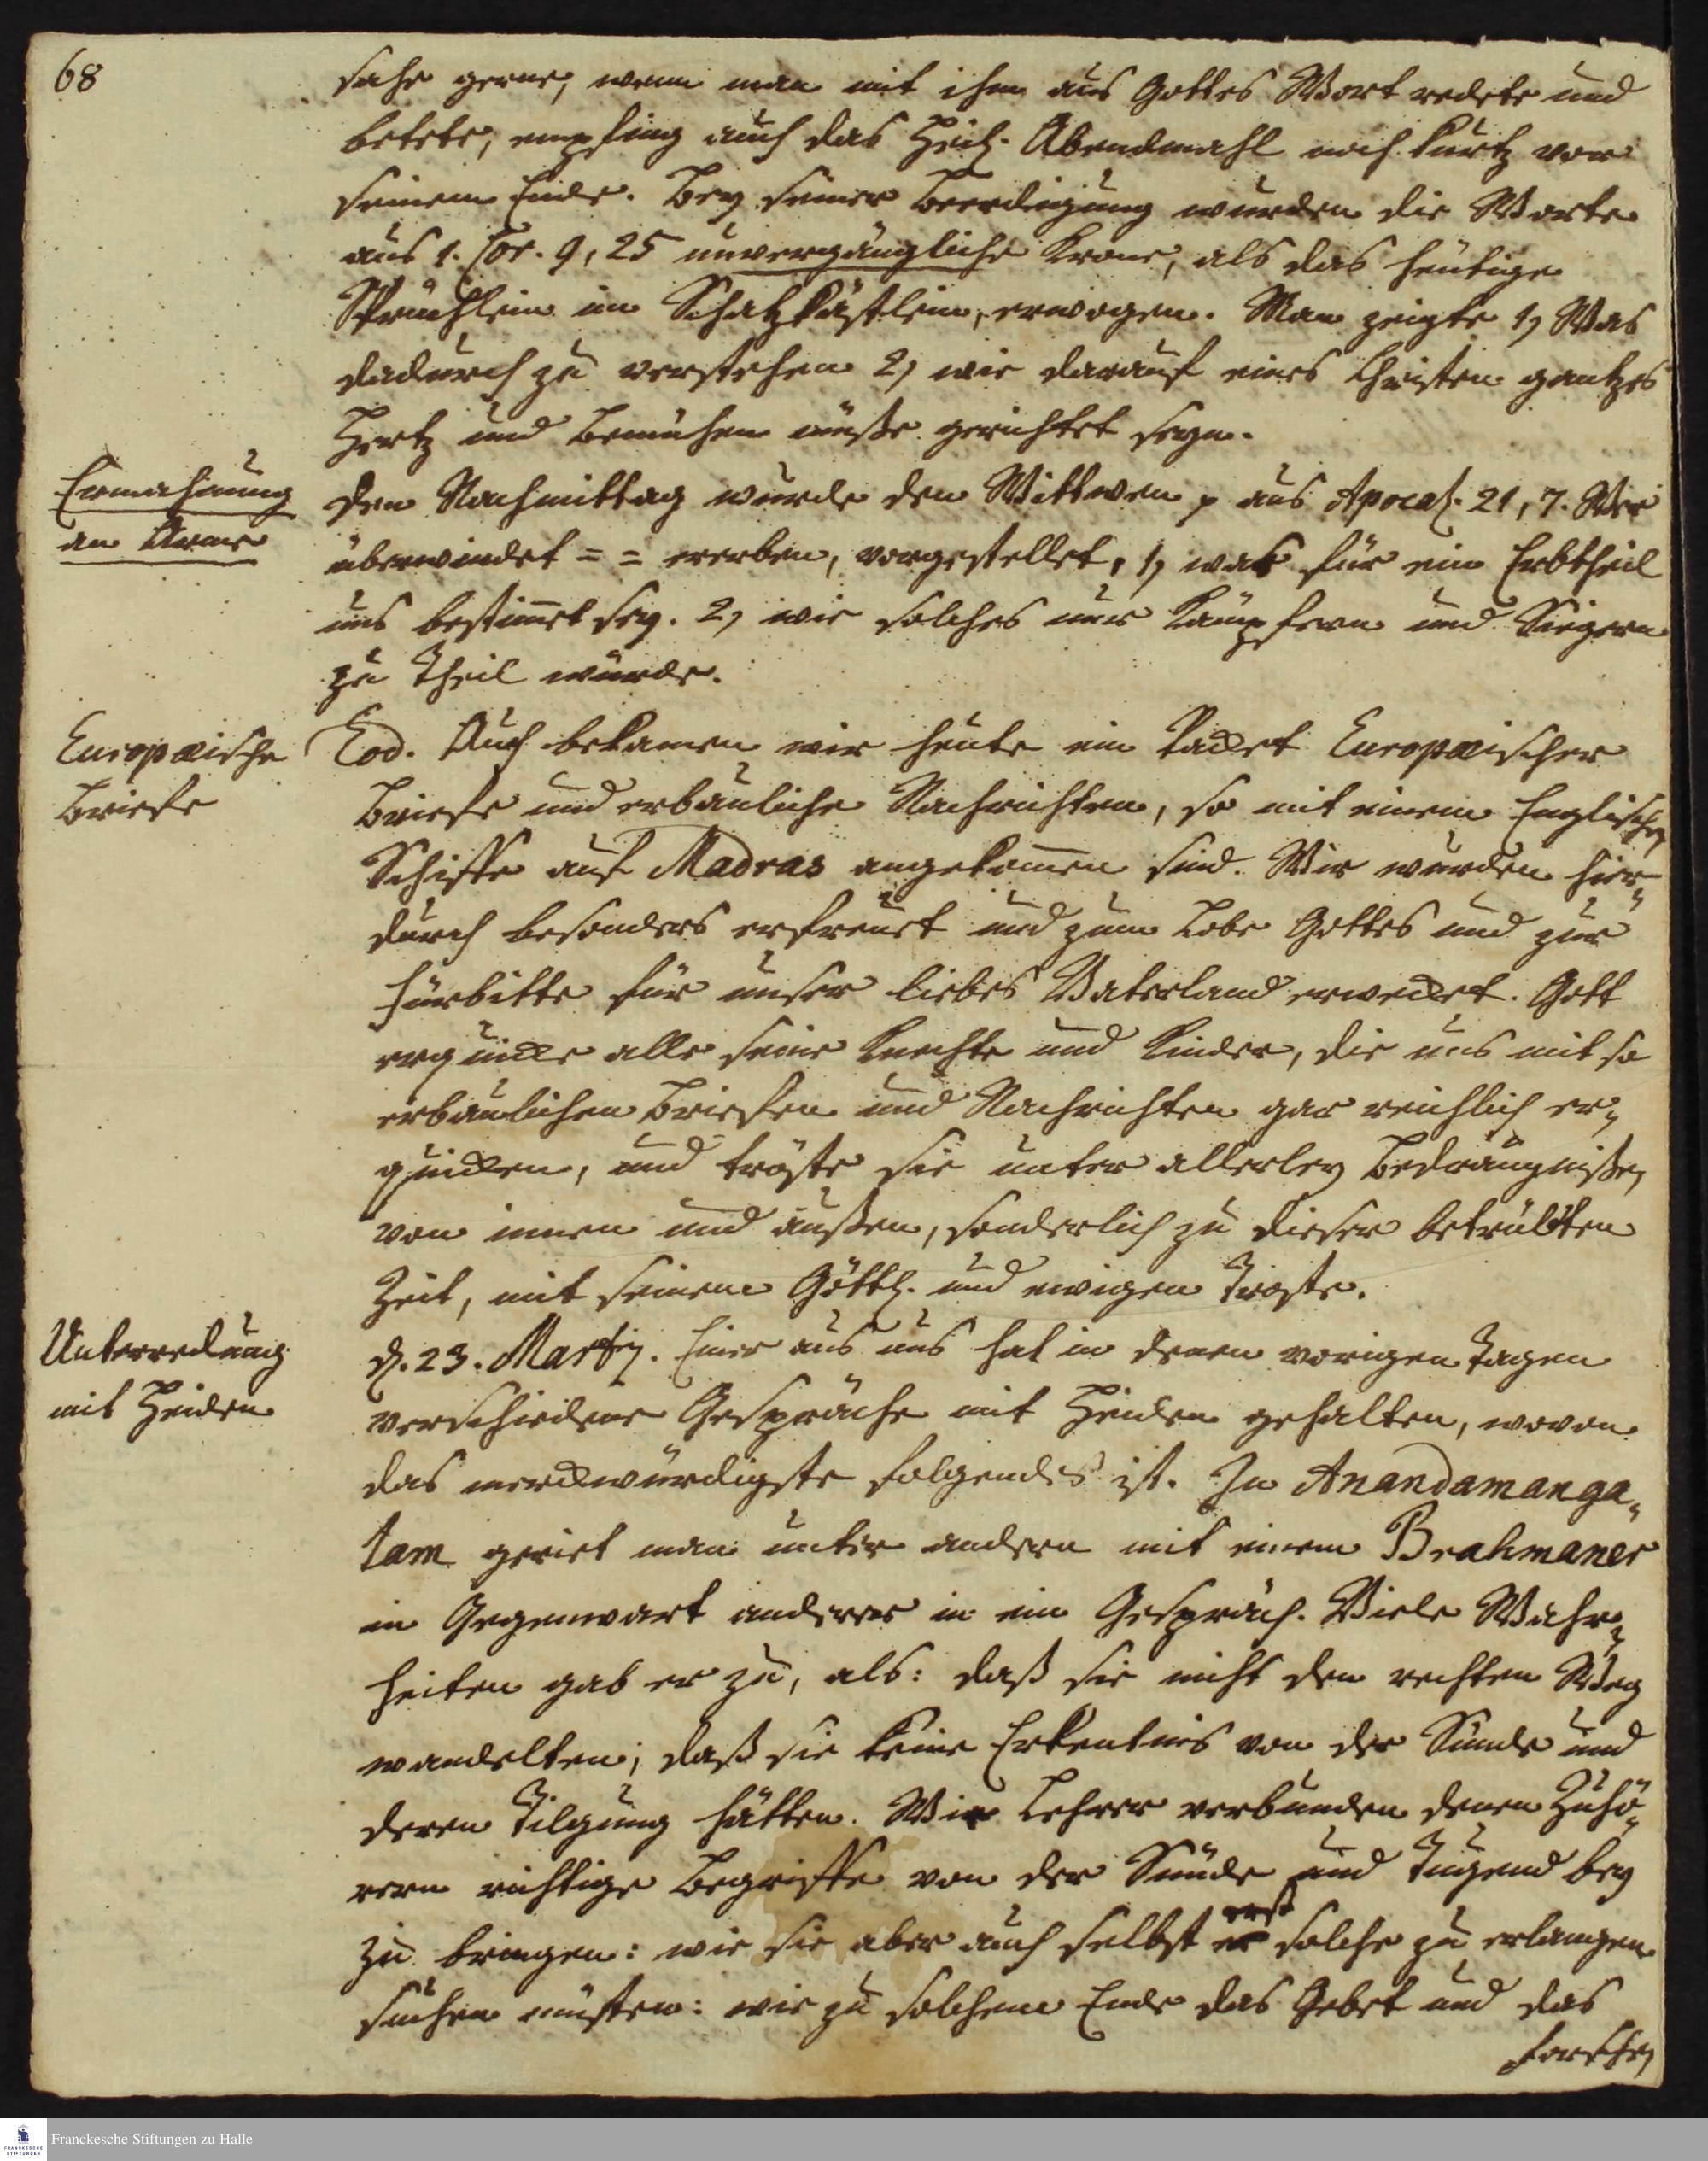 68
sahe gerne, wenn man mit ihm aus Gottes Wort redete und
betete, empfing auch das Heil. Abendmahl noch kurtz vor
seinem Ende. Bey seiner Beerdigung wurden die Worte
aus 1. Cor. 9, 25 unvergängliche Krone, als das heutige
Sprüchlein im Schatzkästlein, erwogen. Man zeigte 1, Was
dadurch zu verstehen 2, wie darauf eines Christen gantzes
Hertz und Bemühen müße gerichtet seyn.
Ermahnung
an Arme
Den Nachmittag wurde den Wittwen p aus Apocal. 21, 7. Wer
überwindet = = ererben, vorgestellet, 1, was für ein Erbtheil
uns bestim̅et sey. 2, wie solches nur Kämpfern und Siegern
zu Theil würde.
Europæische
Briefe
Eod. Auch bekamen wir heute ein Packet Europæischer
Briefe und erbauliche Nachrichten, so mit einem Englischen
Schiffe auf Madras angekom̅en sind. Wir wurden hier-
durch besonders erfreuet und zum Lobe Gottes und zur
Fürbitte für unser liebes Vaterland erwecket. Gott
erquicke alle seine Knechte und Kinder, die uns mit so
erbaulichen Briefen und Nachrichten gar reichlich er-
quicken, und tröste sie unter allerley Bedrängnißen
von innen und außen, sonderlich zu dieser betrübten
Zeit, mit seinem Göttl. und ewigen Troste.
Unterredung
mit Heiden
d. 23. Martij. Einer aus uns hat in denen vorigen Tagen
verschiedene Gespräche mit Heiden gehalten, wovon
das merckwürdigste folgendes ist. In Anandamanga-
lam geriet man unter andern mit einem Brahmaner
in Gegenwart anderer in ein Gespräch. Viele Wahr-
heiten gab er zu, als: daß sie nicht den rechten Weg
wandelten; daß sie keine Erkentnis von der Sünde und
deren Tilgung hätten. Wie Lehrer verbunden denen Zuhö-
rern richtige Begriffe von der Sünde und Tugend bey
zu bringen: wie sie aber auch selbst erst solche zu erlangen
suchen müsten: wie zu solchem Ende das Gebet und das
Forschen
Franckesche Stiftungen zu Halle